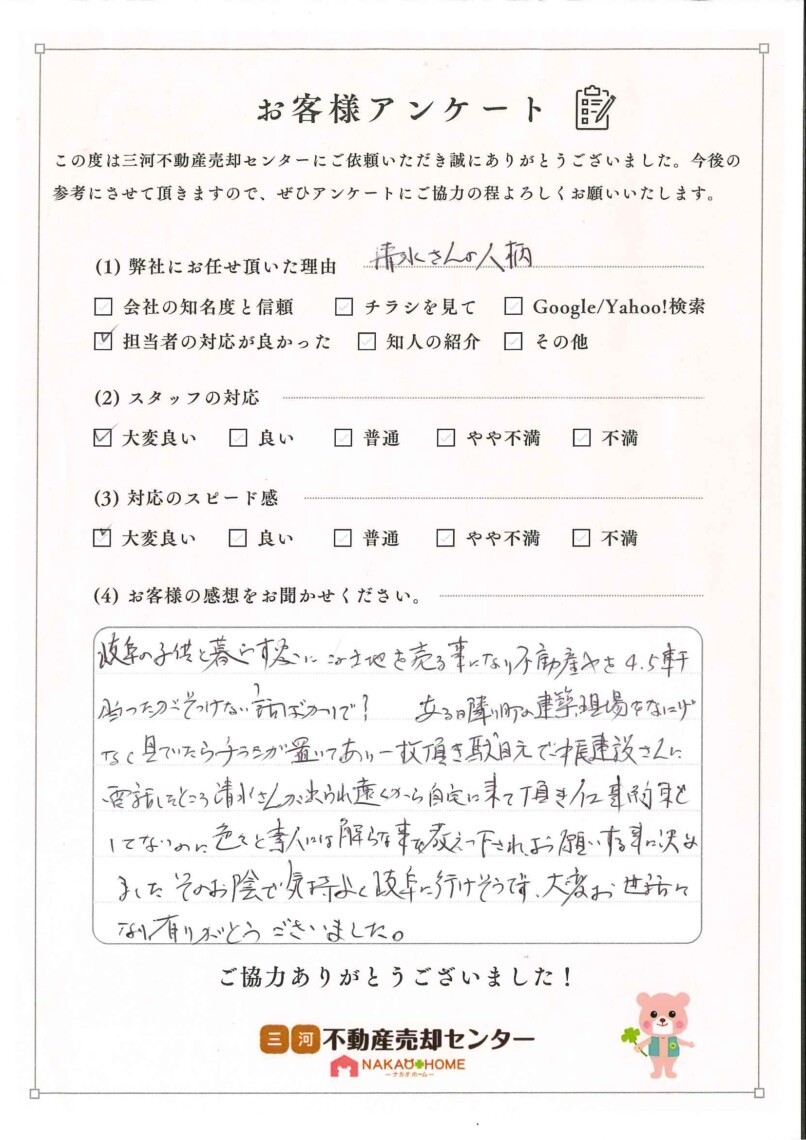 お客様アンケート
この度は三河不動産売却センターにご依頼いただき誠にありがとうございました。今後の
参考にさせて頂きますので、ぜひアンケートにご協力の程よろしくお願いいたします。
(1) 弊社にお任せ頂いた理由 清水さんの人柄
会社の知名度と信頼 チラシを見て Google/Yahoo!検索
担当者の対応が良かった 知人の紹介 その他
(2) スタッフの対応
大変良い 良い 普通 やや不満 不満
(3) 対応のスピード感
大変良い 良い 普通 やや不満 不満
(4) お客様の感想をお聞かせください。
岐阜の子供と暮らす為に 土地を売る事になり不動産やを4.5軒
当ったがそっけない話ばかりで? ある日隣り町の建築現場をなにげ
なく見ていたらチラシが置いてあり一枚頂き駄目元で 建設さんに
電話したところ清水さんが出られ遠くから自宅に来て頂き 契約を
してないのに色々と素人には解らな事を教えて下されお願いする事に決め
ましたそのお陰で気持よく岐阜に行けそうです、大変お世話に
なり有りがとうございました。
ご協力ありがとうございました!
三河不動産売却センター
NAKAO HOME
ーナカオホームー